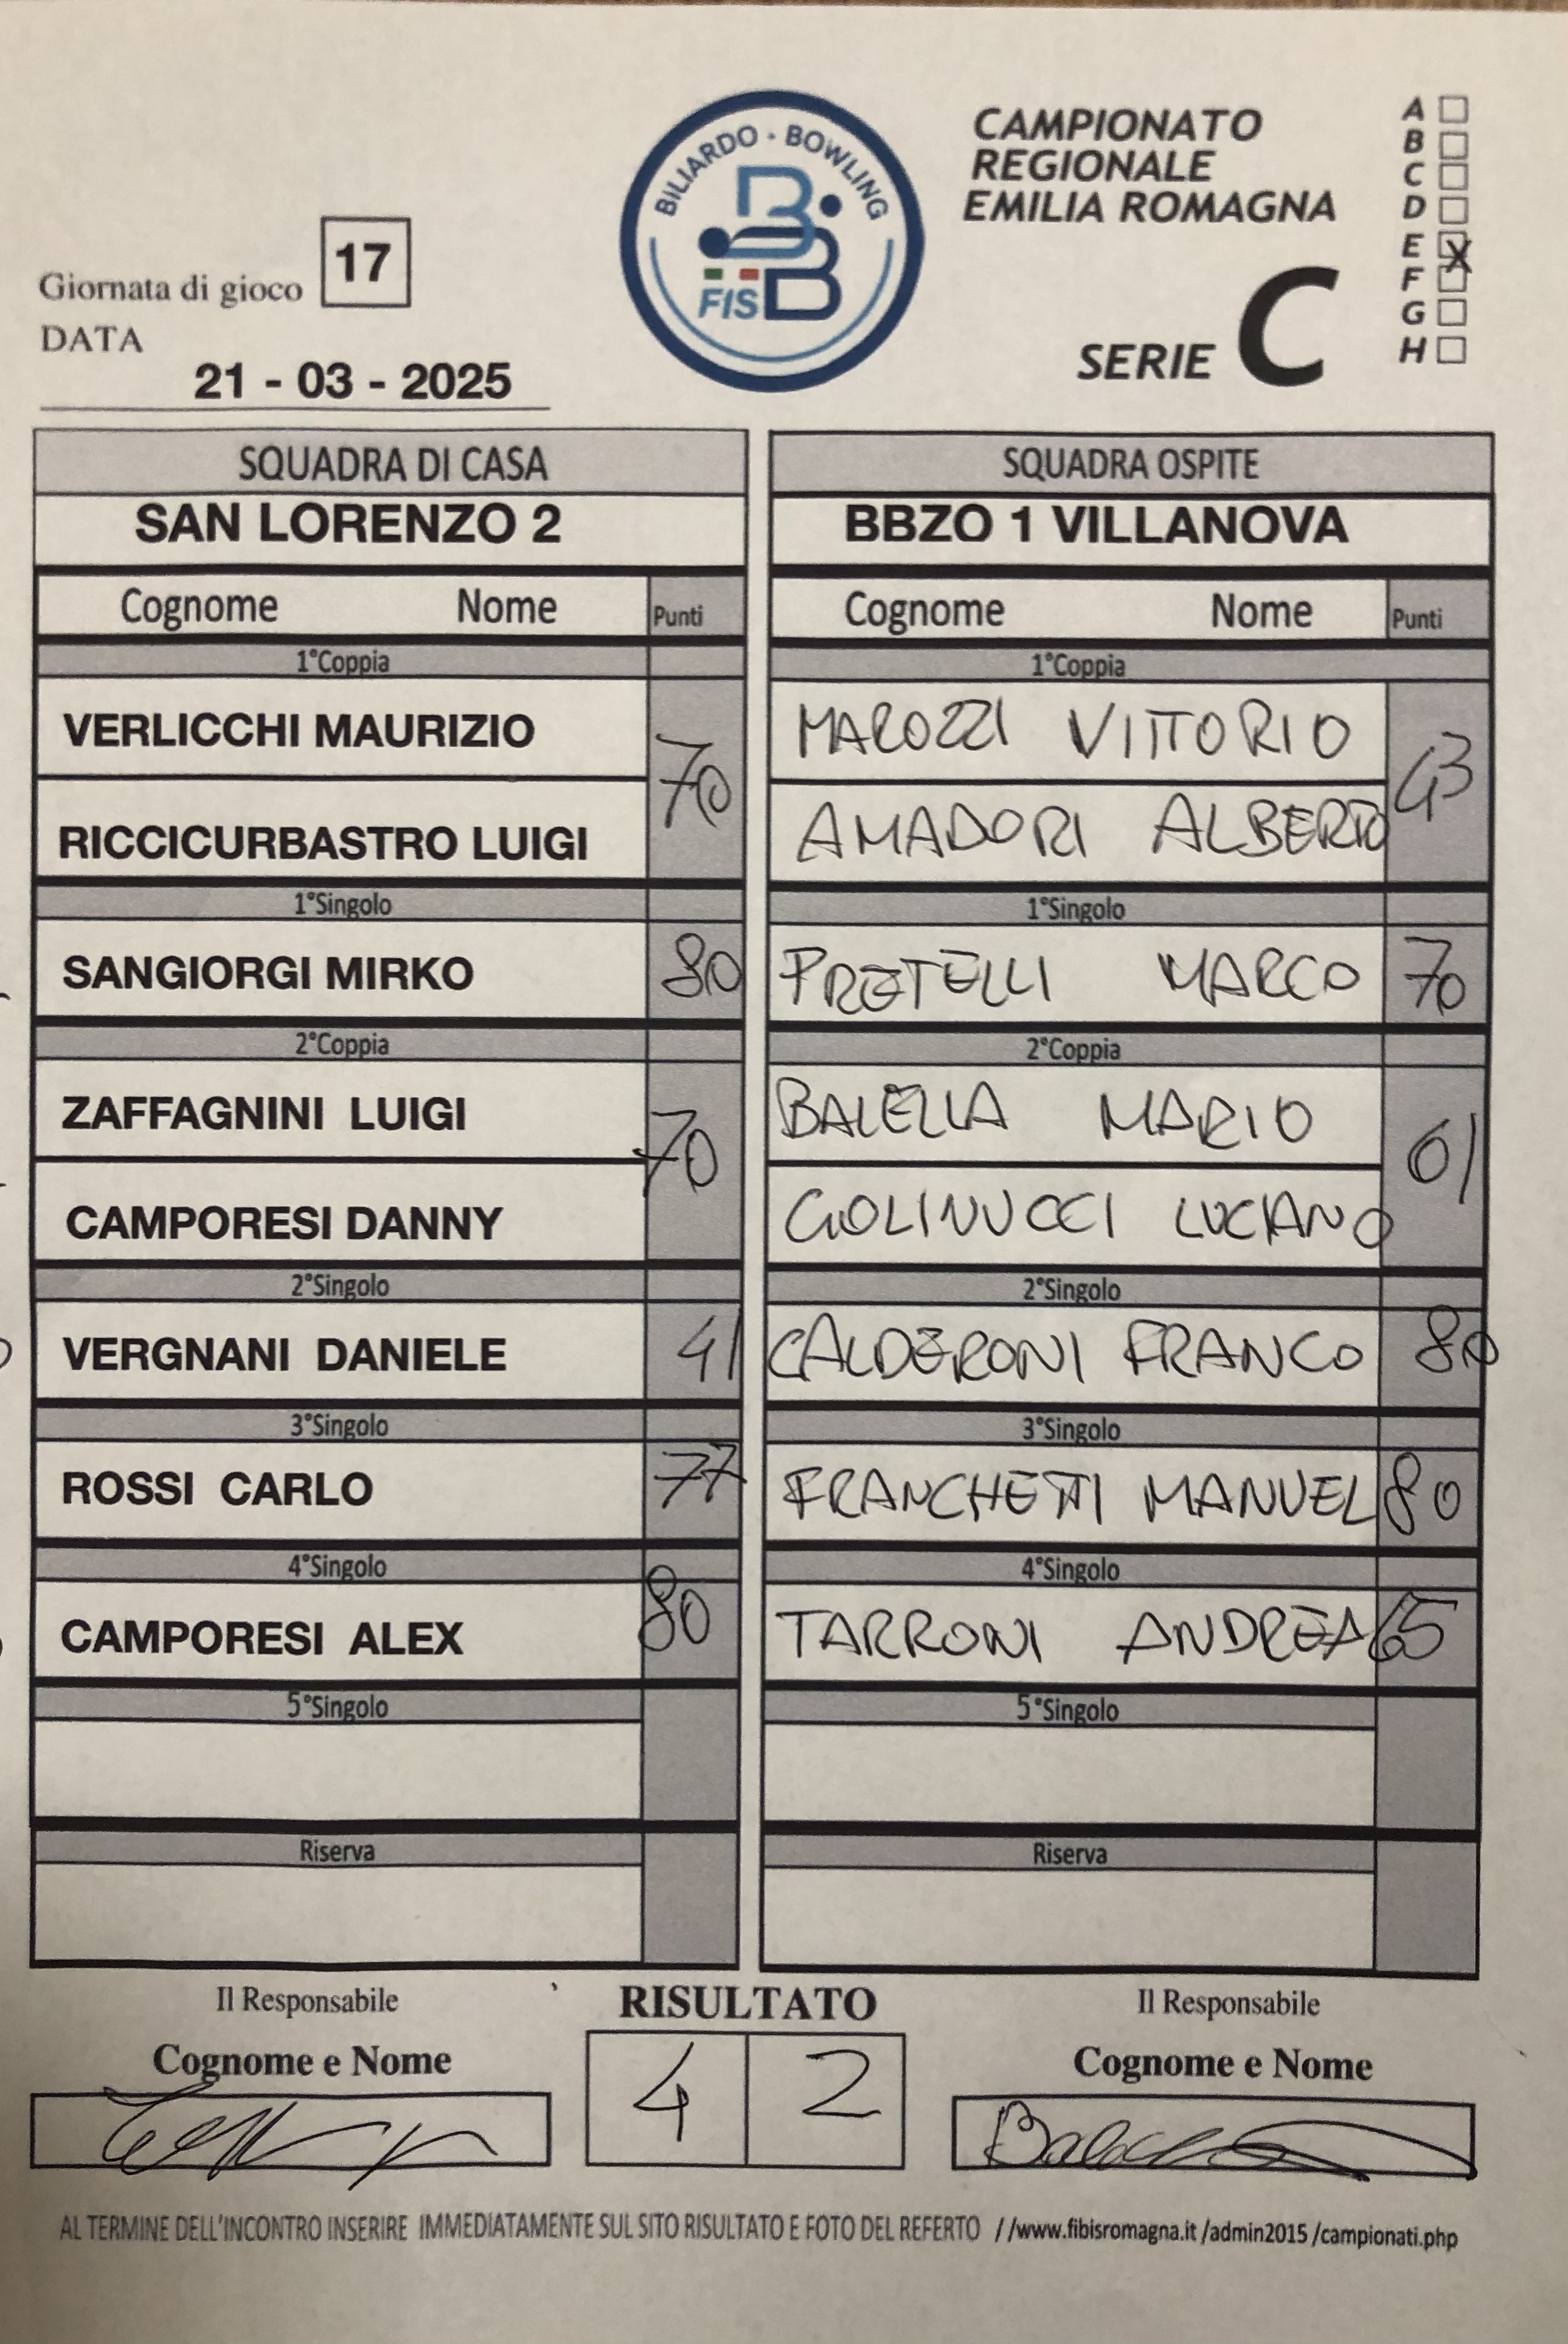 BILIARDO · BOWLING
FISBB
CAMPIONATO
REGIONALE
EMILIA ROMAGNA
SERIE C
A
B
C
D
E X
F
G
H
Giornata di gioco 17
DATA
21 - 03 - 2025
SQUADRA DI CASA
SAN LORENZO 2
Cognome Nome Punti
1°Coppia
VERLICCHI MAURIZIO
70
RICCICURBASTRO LUIGI
1°Singolo
SANGIORGI MIRKO 80
2°Coppia
ZAFFAGNINI LUIGI
70
CAMPORESI DANNY
2°Singolo
VERGNANI DANIELE 41
3°Singolo
ROSSI CARLO 77
4°Singolo
CAMPORESI ALEX 80
5°Singolo
Riserva
SQUADRA OSPITE
BBZO 1 VILLANOVA
Cognome Nome Punti
1°Coppia
MAROZZI VITTORIO
43
AMADORI ALBERTO
1°Singolo
PRETELLI MARCO 70
2°Coppia
BALELLA MARIO
61
GOLINUCCI LUCIANO
2°Singolo
CALDERONI FRANCO 80
3°Singolo
FRANCHETTI MANUEL 80
4°Singolo
TARRONI ANDREA 65
5°Singolo
Riserva
Il Responsabile
Cognome e Nome
RISULTATO
4 2
Il Responsabile
Cognome e Nome
AL TERMINE DELL'INCONTRO INSERIRE IMMEDIATAMENTE SUL SITO RISULTATO E FOTO DEL REFERTO //www.fibisromagna.it /admin2015 /campionati.php